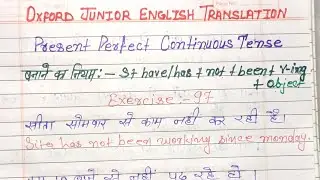 OXFORD JUNIOR ENGLISH TRANSLATION
Present Perfect Continuous Tense
बनाने का नियम:- S+ have/has + not + been + V-ing + Object
Exercise:-97
सीता सोमवार से काम नहीं कर रही है।
Sita has not been working since monday.
से नहीं पढ़ रहे हो।